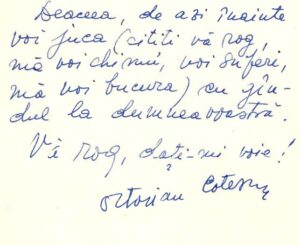 Deaceea, de azi înainte
voi juca (citiți vă rog,
mă voi chinui, voi suferi,
mă voi bucura) cu gîn-
dul la dumneavoastră.
Vă rog, dați-mi voie!
Octavian Cotescu